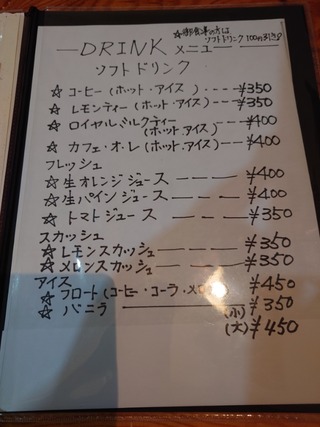 ☆御食事の方は
ソフトドリンク 100円引き
DRINK メニュー
ソフトドリンク
☆ コーヒー (ホット・アイス) ---- ¥350
☆ レモンティー (ホット・アイス) --- ¥350
☆ ロイヤルミルクティー --- ¥400
(ホット・アイス)
☆ カフェ・オ・レ (ホット・アイス) -- ¥400
フレッシュ
☆ 生オレンジジュース --- ¥400
☆ 生パインジュース --- ¥400
☆ トマトジュース --- ¥350
スカッシュ
☆ レモンスカッシュ --- ¥350
☆ メロンスカッシュ --- ¥350
アイス
☆ フロート (コーヒー・コーラ・メロン) ¥450
☆ バニラ ――― (小) ¥350
(大) ¥450